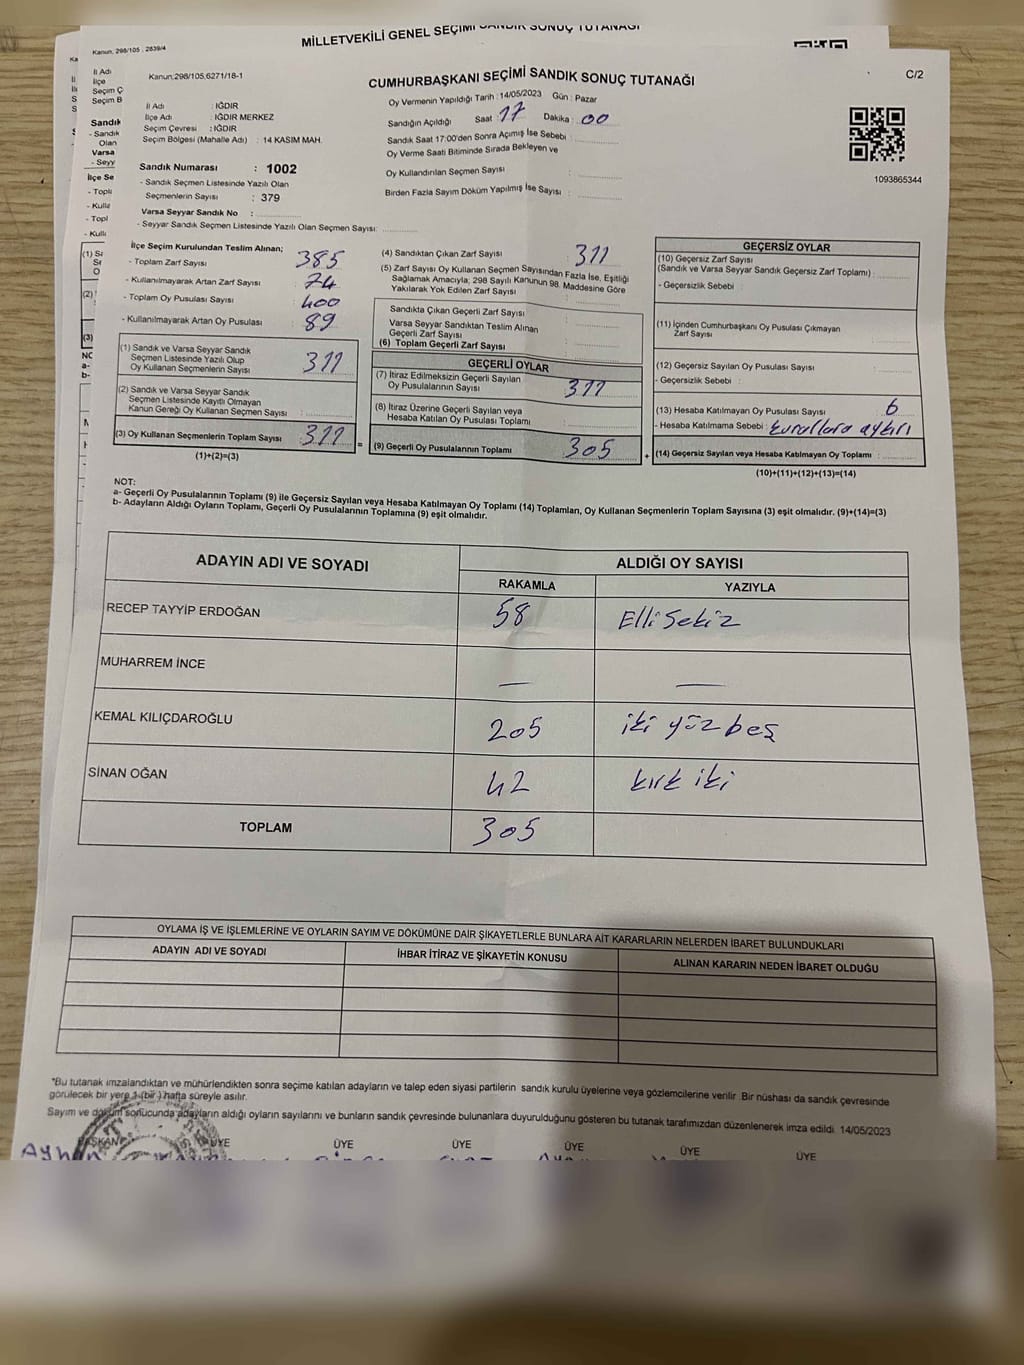 MİLLETVEKİLİ GENEL SEÇİMİ SANDIK SONUÇ TUTANAĞI
Kanun, 298/105, 2839/4
İl Adı
İlçe
Seçim Ç
Seçim B
Sandık
- Sandık
Olan
Varsa
- Seyy
İlçe Se
- Topl
- Kulla
- Topl
- Kull
Kanun:298/105,6271/18-1
CUMHURBAŞKANI SEÇİMİ SANDIK SONUÇ TUTANAĞI
C/2
İl Adı : IĞDIR
İlçe Adı : IĞDIR MERKEZ
Seçim Çevresi : IĞDIR
Seçim Bölgesi (Mahalle Adı) : 14 KASIM MAH.
Sandık Numarası : 1002
- Sandık Seçmen Listesinde Yazılı Olan
Seçmenlerin Sayısı : 379
Varsa Seyyar Sandık No :
- Seyyar Sandık Seçmen Listesinde Yazılı Olan Seçmen Sayısı:
Oy Vermenin Yapıldığı Tarih : 14/05/2023 Gün : Pazar
Sandığın Açıldığı Saat 17 Dakika : 00
Sandık Saat 17:00'den Sonra Açımış İse Sebebi :
Oy Verme Saati Bitiminde Sırada Bekleyen ve
Oy Kullandırılan Seçmen Sayısı :
Birden Fazla Sayım Döküm Yapılmış İse Sayısı :
1093865344
İlçe Seçim Kurulundan Teslim Alınan;
- Toplam Zarf Sayısı : 385
- Kullanılmayarak Artan Zarf Sayısı : 74
- Toplam Oy Pusulası Sayısı : 400
- Kullanılmayarak Artan Oy Pusulası : 89
(1) Sandık ve Varsa Seyyar Sandık
Seçmen Listesinde Yazılı Olup
Oy Kullanan Seçmenlerin Sayısı : 311
(2) Sandık ve Varsa Seyyar Sandık
Seçmen Listesinde Kayıtlı Olmayan
Kanun Gereği Oy Kullanan Seçmen Sayısı :
(3) Oy Kullanan Seçmenlerin Toplam Sayısı : 311
(1)+(2)=(3)
=
(4) Sandıktan Çıkan Zarf Sayısı : 311
(5) Zarf Sayısı Oy Kullanan Seçmen Sayısından Fazla İse, Eşitliği
Sağlamak Amacıyla; 298 Sayılı Kanunun 98. Maddesine Göre
Yakılarak Yok Edilen Zarf Sayısı :
Sandıkta Çıkan Geçerli Zarf Sayısı :
Varsa Seyyar Sandıktan Teslim Alınan
Geçerli Zarf Sayısı :
(6) Toplam Geçerli Zarf Sayısı :
GEÇERLİ OYLAR
(7) İtiraz Edilmeksizin Geçerli Sayılan
Oy Pusulalarının Sayısı : 311
(8) İtiraz Üzerine Geçerli Sayılan veya
Hesaba Katılan Oy Pusulası Toplamı :
(9) Geçerli Oy Pusulalarının Toplamı : 305
+
GEÇERSİZ OYLAR
(10) Geçersiz Zarf Sayısı
(Sandık ve Varsa Seyyar Sandık Geçersiz Zarf Toplamı) :
- Geçersizlik Sebebi :
(11) İçinden Cumhurbaşkanı Oy Pusulası Çıkmayan
Zarf Sayısı :
(12) Geçersiz Sayılan Oy Pusulası Sayısı :
- Geçersizlik Sebebi :
(13) Hesaba Katılmayan Oy Pusulası Sayısı : 6
- Hesaba Katılmama Sebebi : kurallara aykırı
(14) Geçersiz Sayılan veya Hesaba Katılmayan Oy Toplamı :
(10)+(11)+(12)+(13)=(14)
NOT:
a- Geçerli Oy Pusulalarının Toplamı (9) ile Geçersiz Sayılan veya Hesaba Katılmayan Oy Toplamı (14) Toplamları, Oy Kullanan Seçmenlerin Toplam Sayısına (3) eşit olmalıdır. (9)+(14)=(3)
b- Adayların Aldığı Oyların Toplamı, Geçerli Oy Pusulalarının Toplamına (9) eşit olmalıdır.
ADAYIN ADI VE SOYADI
ALDIĞI OY SAYISI
RAKAMLA YAZIYLA
RECEP TAYYİP ERDOĞAN 58 Elli Sekiz
MUHARREM İNCE — —
KEMAL KILIÇDAROĞLU 205 iki yüz beş
SİNAN OĞAN 42 kırk iki
TOPLAM 305
OYLAMA İŞ VE İŞLEMLERİNE VE OYLARIN SAYIM VE DÖKÜMÜNE DAİR ŞİKAYETLERLE BUNLARA AİT KARARLARIN NELERDEN İBARET BULUNDUKLARI
ADAYIN ADI VE SOYADI İHBAR İTİRAZ VE ŞİKAYETİN KONUSU ALINAN KARARIN NEDEN İBARET OLDUĞU
*Bu tutanak imzalandıktan ve mühürlendikten sonra seçime katılan adayların ve talep eden siyasi partilerin sandık kurulu üyelerine veya gözlemcilerine verilir. Bir nüshası da sandık çevresinde
görülecek bir yere 1 (bir) hafta süreyle asılır.
Sayım ve döküm sonucunda adayların aldığı oyların sayılarını ve bunların sandık çevresinde bulunanlara duyurulduğunu gösteren bu tutanak tarafımızdan düzenlenerek imza edildi. 14/05/2023
BAŞKAN ÜYE ÜYE ÜYE ÜYE ÜYE ÜYE